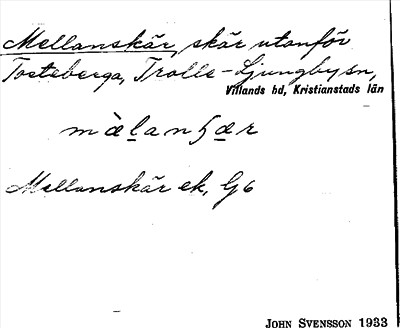 Mellanskär, skär utanför
Tosteberga, Trolle-Ljungby sn,
Villands hd, Kristianstads län
Mellanskär ek, G6
JOHN SVENSSON 1933